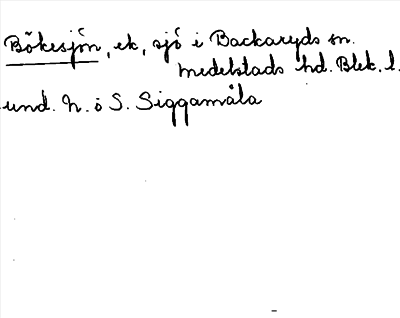 Bökesjön, ek, sjö i Backaryds sn.
Medelstads hd. Blek. l.
und. N. o S. Siggamåla